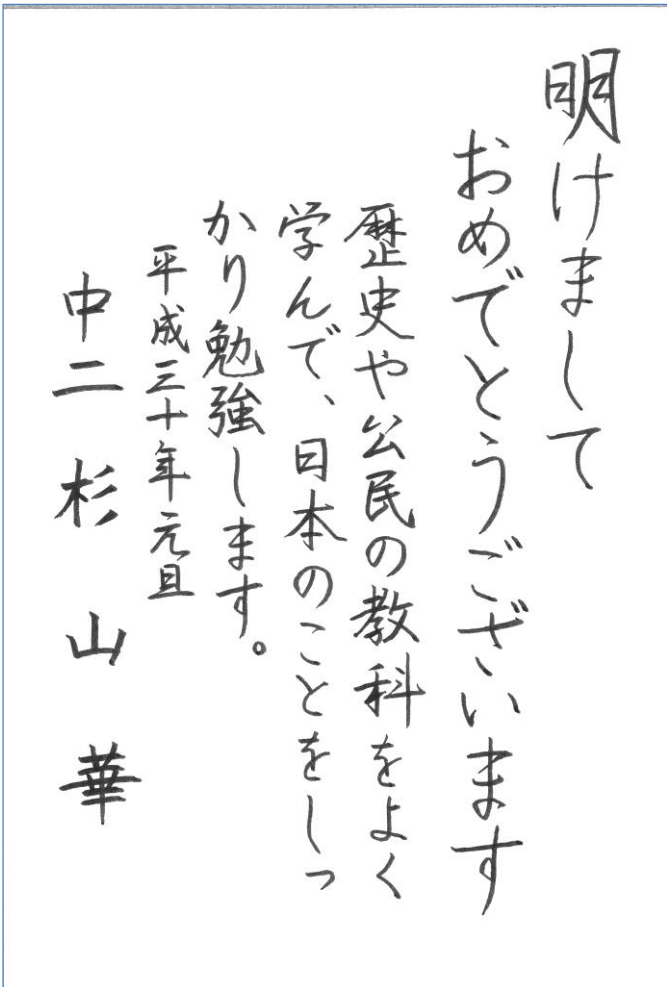 明けまして
おめでとうございます
歴史や公民の教科をよく
学んで、日本のことをしっ
かり勉強します。
平成三十年元旦
中二 杉山華